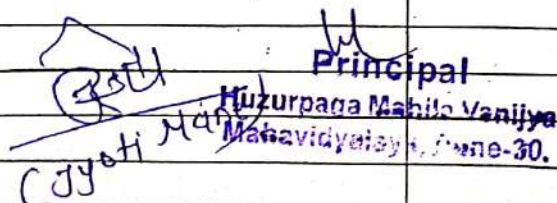 Principal
Huzurpaga Mahila Vanijya
Mahavidyalaya, Pune-30.
(Jyoti Mane)